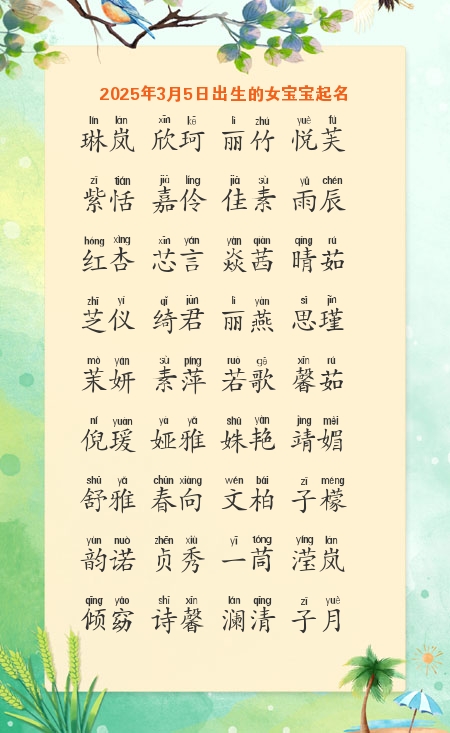 2025年3月5日出生的女宝宝起名
lín lán xīn kē lì zhú yuè fú
琳岚 欣珂 丽竹 悦芙
zǐ tián jiā líng jiā sù yǔ chén
紫恬 嘉伶 佳素 雨辰
hóng xìng xīn yán yàn qiàn qíng rú
红杏 芯言 焱茜 晴茹
zhī yí qǐ jūn lì yàn sī jǐn
芝仪 绮君 丽燕 思瑾
mò yán sù píng ruò gē xīn rú
茉妍 素萍 若歌 馨茹
ní yuàn yà yǎ shū yàn jìng mèi
倪瑗 娅雅 姝艳 靖媚
shū yǎ chūn xiàng wén bǎi zǐ méng
舒雅 春向 文柏 子檬
yùn nuò zhēn xiù yī tóng yíng lán
韵诺 贞秀 一茼 滢岚
qīng yǎo shī xīn lán qīng zǐ yuè
倾窈 诗馨 澜清 子月